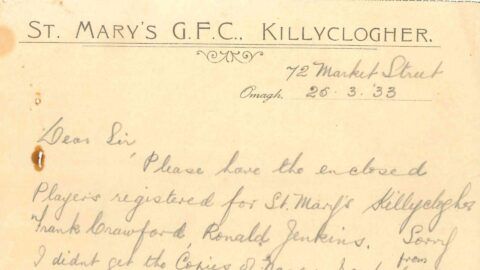 ST. MARY'S G.F.C., KILLYCLOGHER.
72 Market Street
Omagh, 26.3.33
Dear Sir,
Please have the enclosed
Players registered for St. Mary's Killyclogher
Frank Crawford, Ronald Jenkins. Sorry
I didnt get the Copies of from